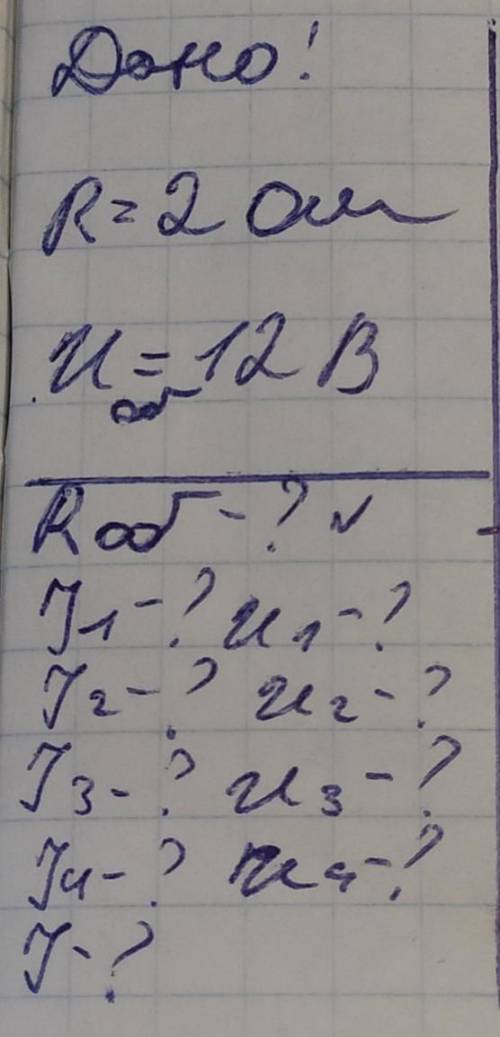 Дано!
R = 2 Ом
U об = 12 В
R об - ? ✓
J1 - ? U1 - ?
J2 - ? U2 - ?
J3 - ? U3 - ?
J4 - ? U4 - ?
J - ?